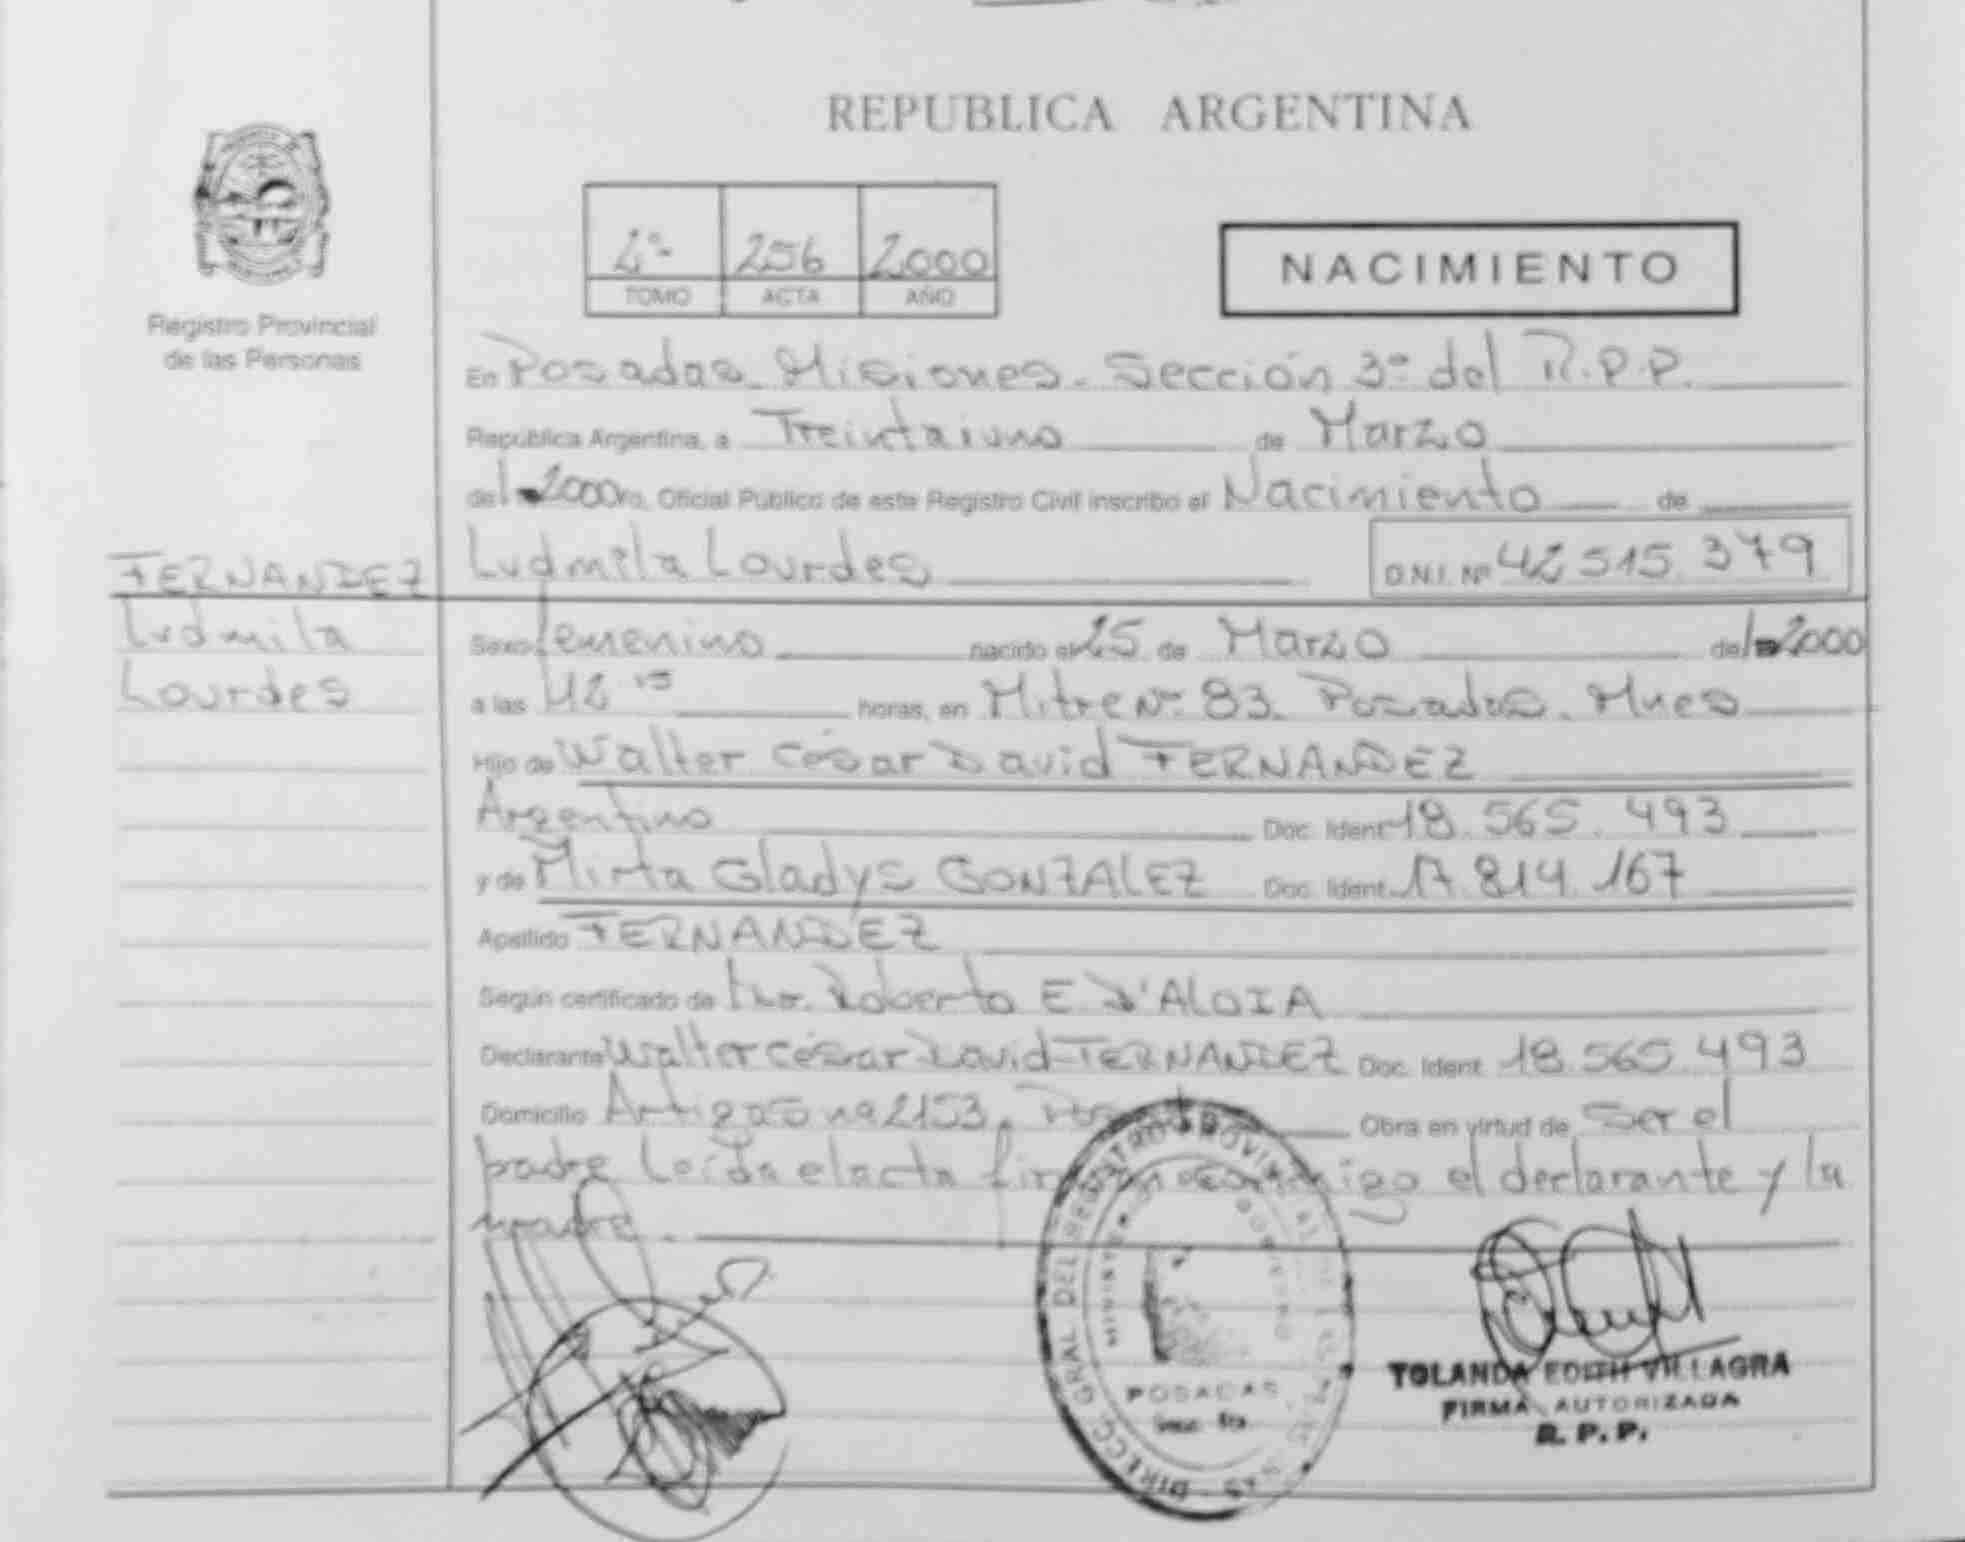 REPUBLICA ARGENTINA
Registro Provincial
de las Personas
2º- 256 2000
TOMO ACTA AÑO
NACIMIENTO
En Posadas Misiones. Sección 3ª del R.P.P.
República Argentina, a Treintaiuno de Marzo
del 2000 yo, Oficial Público de este Registro Civil inscribo el Nacimiento de
FERNANDEZ Ludmila Lourdes D.N.I. Nº 42 515 379
Ludmila
Lourdes
Sexo femenino nacido el 25 de Marzo del 2000
a las 15 horas, en Mitre Nº 83. Posadas. Mnes
Hijo de Walter César David FERNANDEZ
Argentino Doc. Ident 18.565.493
y de Mirta Gladys GONZALEZ Doc. Ident 17.814.167
Apellido FERNANDEZ
Según certificado de Roberto E D'ALOIA
Declarante Walter César David FERNANDEZ Doc. Ident 18.565.493
Domicilio Artigas nº 2153, Obra en virtud de ser el
padre Leída el acta conmigo el declarante y la
madre.
DIRECC. GRAL DEL REGISTRO PROVINCIAL
POSADAS
YOLANDA EDITH VILLAGRA
FIRMA AUTORIZADA
R. P. P.